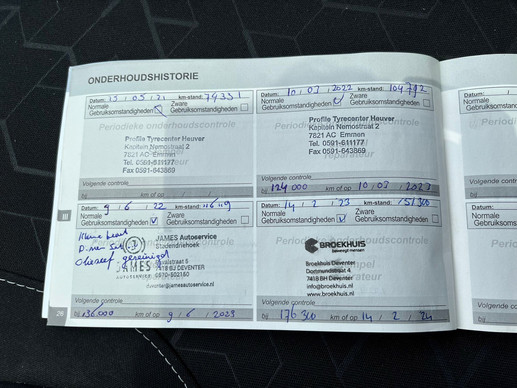 ONDERHOUDSHISTORIE
Datum: 13 / 05 / 21 km-stand: 79331
Normale Gebruiksomstandigheden
Zware Gebruiksomstandigheden
Periodieke onderhoudscontrole
Profile Tyrecenter Heuver
Kapitein Nemostraat 2
7821 AC Emmen
Tel. 0591-611177
Fax 0591-643869
Volgende controle
bij km of op / /
Datum: 10 / 03 / 2022 km-stand: 104792
Normale Gebruiksomstandigheden
Zware Gebruiksomstandigheden
Profile Tyrecenter Heuver
Kapitein Nemostraat 2
7821 AC Emmen
Tel. 0591-611177
Fax 0591-643869
Volgende controle
bij 124000 km of op 10 / 03 / 2023
III
Datum: 9 / 6 / 22
Normale Gebruiksomstandigheden
Zware Gebruiksomstandigheden
JAMES Autoservice
Studiendriehoek
7418 BJ DEVENTER
0570-502180
deventer@jamesautoservice.nl
JAMES
AUTOSERVICE
Volgende controle
bij 136.000 km of op 9 / 6 / 2023
Datum: 14 / 2 / 23 km-stand: 151300
Normale Gebruiksomstandigheden
Zware Gebruiksomstandigheden
BROEKHUIS
beweegt mensen
Broekhuis Deventer
Dortmundstraat 4
7418 BH Deventer
info@broekhuis.nl
www.broekhuis.nl
Volgende controle
bij 176300 km of op 14 / 2 / 24
26